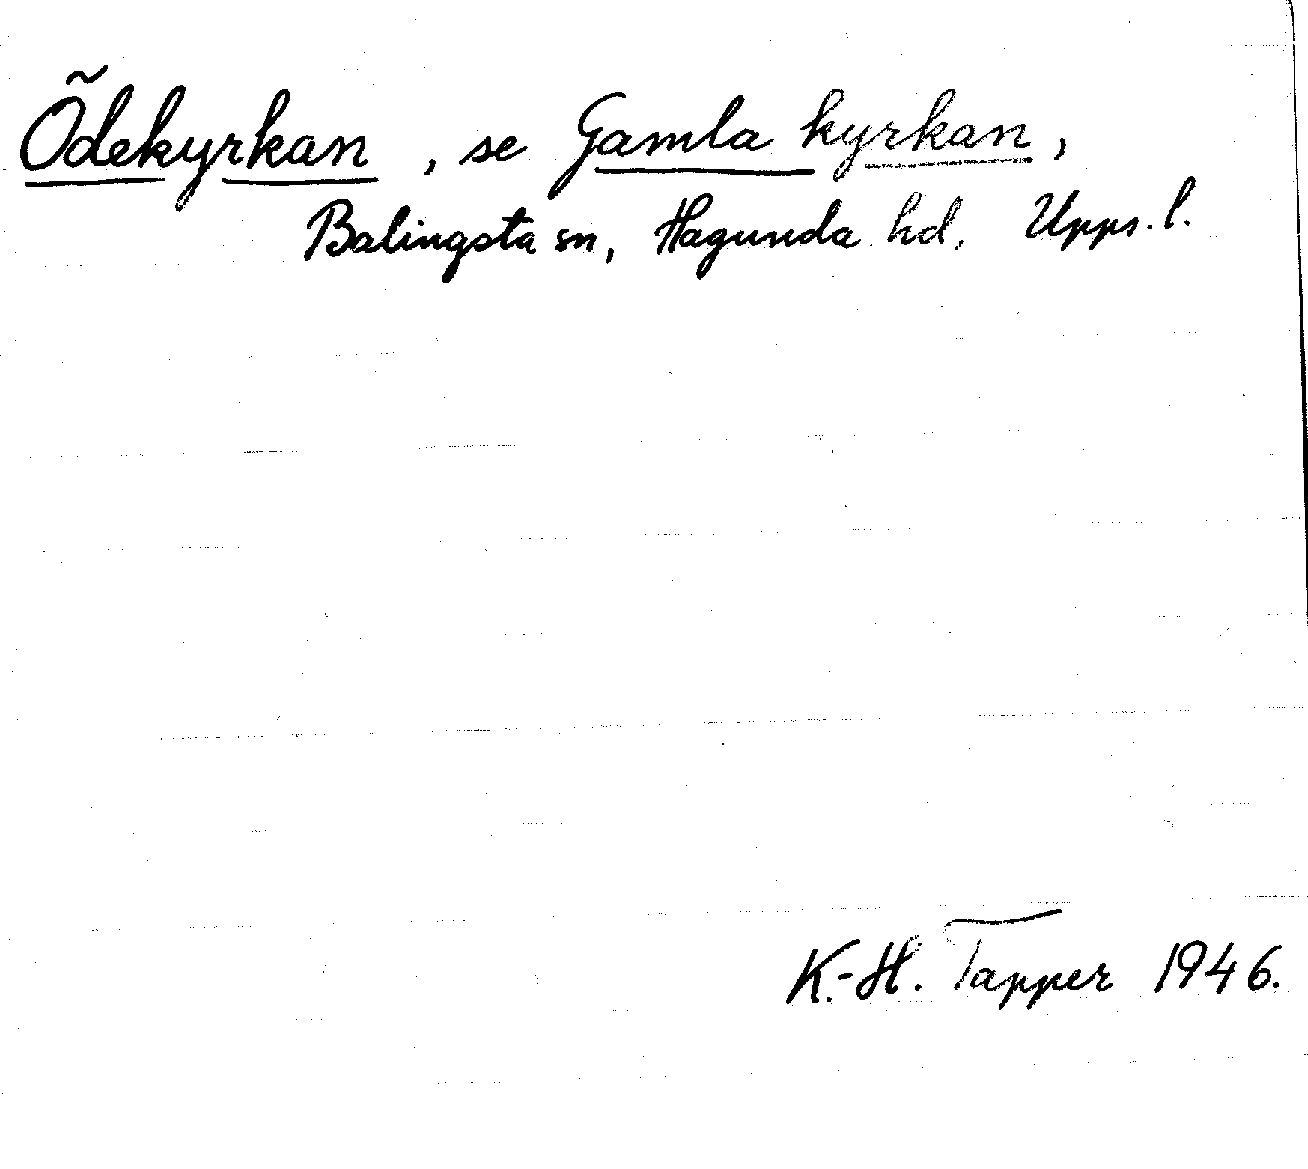 Ödekyrkan, se Gamla kyrkan,
Balingsta sn, Hagunda hd, Upps. l.
K.-H. Tapper 1946.